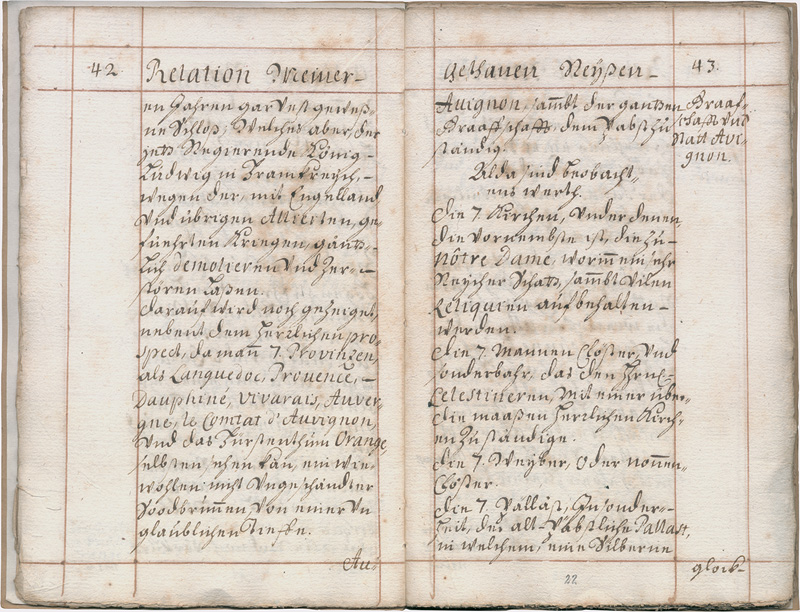 42
Relation Meiner-
en Jahren gar Vest geweß-
ne Schloß, Welches aber, der
jetz Regierende König-
Ludwig in Frankreych,-
wegen der, mit Engelland
Vnd übrigen Allierten, ge-
fuehrten Kriegen, gäntz-
lich demolieren Vnd Zer-
stören Laßen.
darauf wird noch gezeiget,
nebent dem herrlichen pro-
spect, da man 7. Provinzen,
als Languedoc, Provence,-
Dauphine, Vivarais, Auver-
gne, le Comtat d'Auvignon,
Vnd das Fürstenthum Orange,
selbsten sehen kan, ein wie-
wohlen nicht Vngeschändter
Soodbrunnen, Von einer Vn
glaublichen Tieffe.
Au-
gethanen Reyßen-
43.
Auignon, sambt der gantzen
Graaffschafft, dem Pabst zu
ständig.
Graaf-
schafft Vnd
Statt Avi-
gnon.
Alda sind beobacht-
ens werth.
die 7. Kirchen, Vnder denen,
die Vornembste ist, die zu-
nôtre Dame, worinn ein sehr
Reycher Schatz, sambt Vilen
Reliquien aufbehalten-
werden.
die 7. Mannen Clöster, Vnd
sonderbahr, das den Herren
Celestineren, Mit einer über-
die maaßen herrlichen Kirch-
en Zuständige.
die 7. Weyber, oder nonnen-
Clöster.
die 7. Palläst, Insonder-
heit, der alt-Päbstliche Pallast,
in welchem, eine Silberne
glock-
22